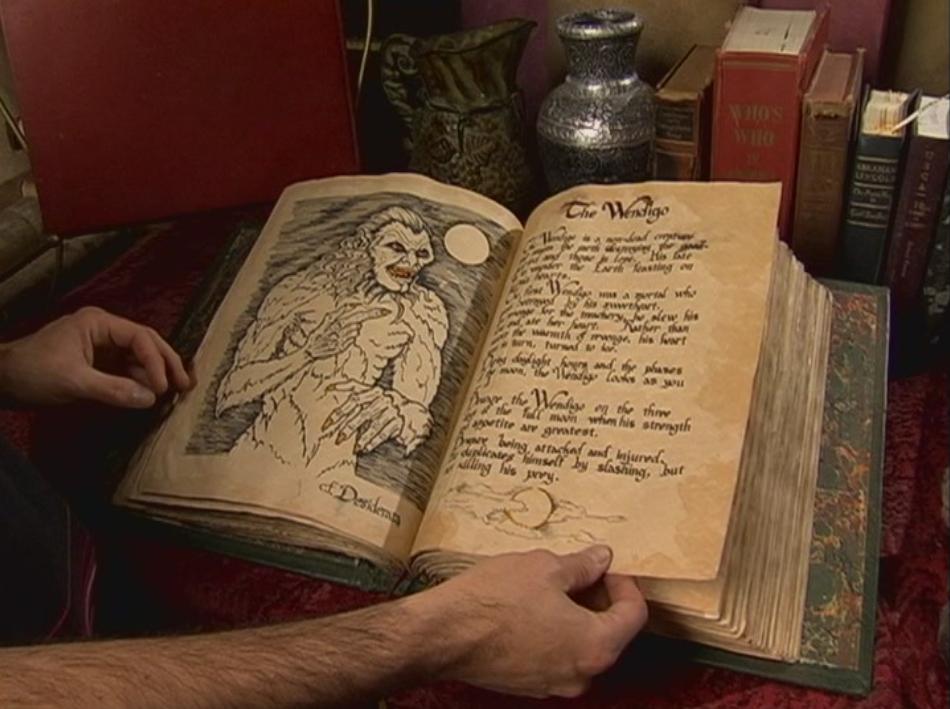 WHO'S
WHO
IN
ABRAHAM
LINCOLN
The Wendigo
Wendigo is a non-dead creature
the earth
and those in love. His fate
wander the Earth feasting on
hearts.
first Wendigo was a mortal who
betrayed by his sweetheart.
revenge for the treachery, he slew his
and ate her heart. Rather than
the warmth of revenge, his heart
turn, turned to ice.
daylight hours and the phases
moon, the Wendigo looks as you
the Wendigo on the three
of the full moon when his strength
appetite are greatest.
Beware being attacked and injured,
duplicates himself by slashing, but
killing his prey.
cf. Desiderata